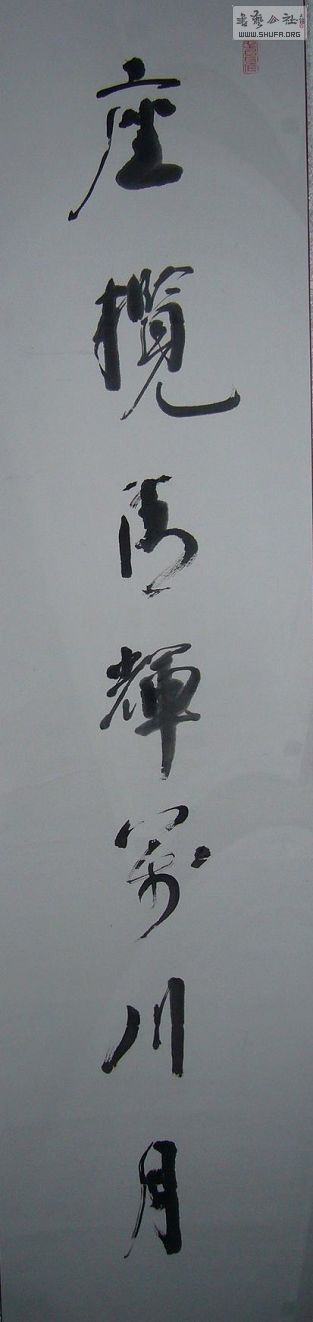 座攬清輝萬川月
書藝公社
WWW.SHUFA.ORG